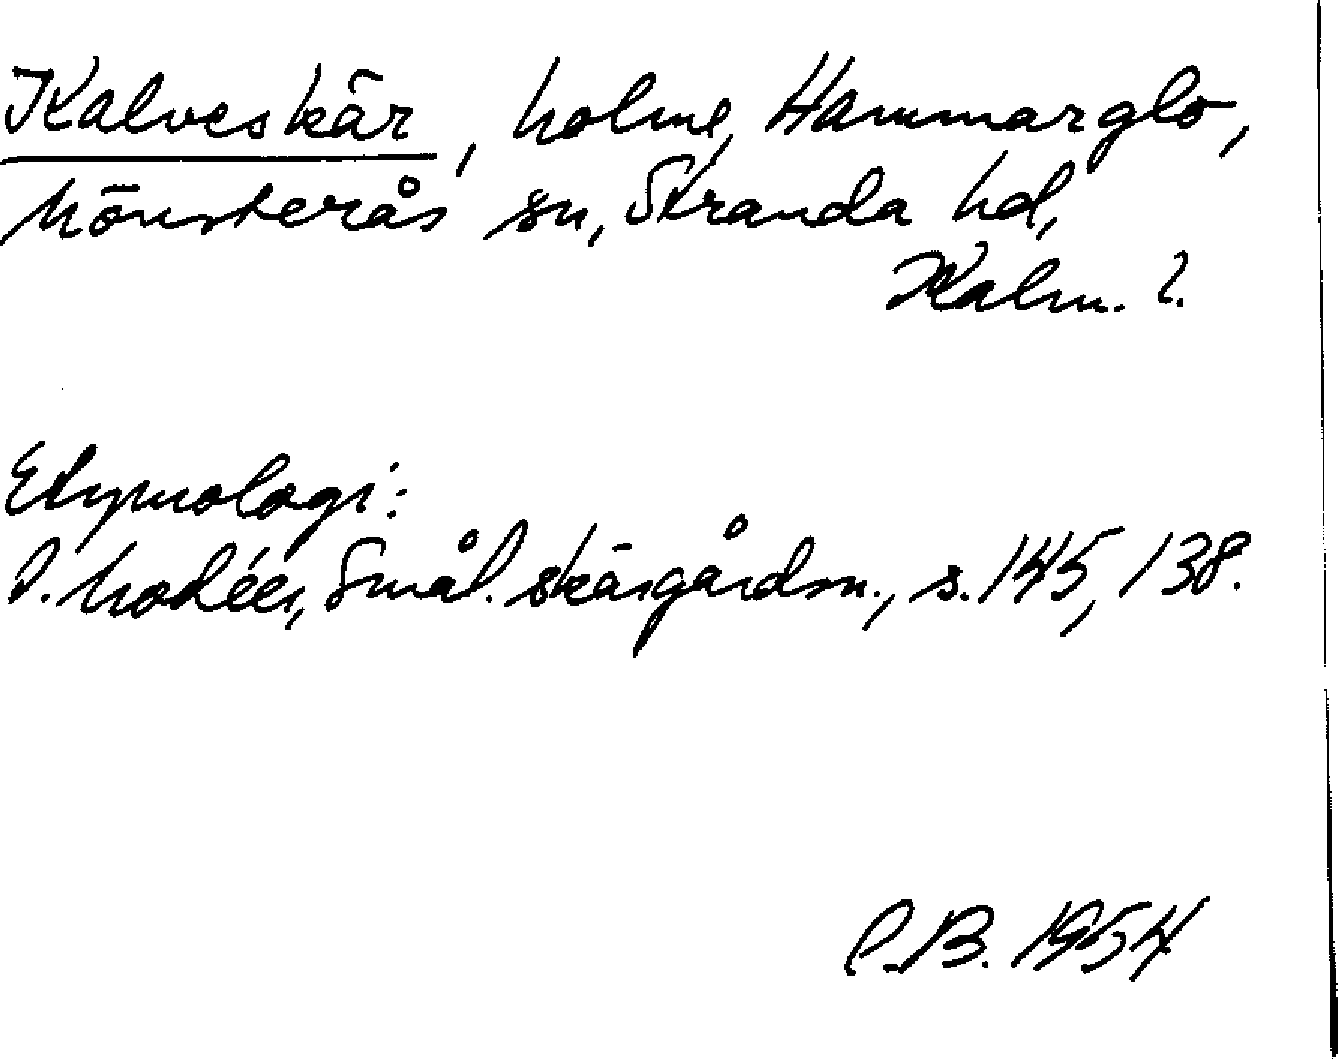 Kalveskär, holme, Hammarglo,
Mönsterås sn, Stranda hd,
Kalm. l.
Etymologi:
I. Modéer, Smål. skärgårdsn., s. 145, 138.
P.B. 1954